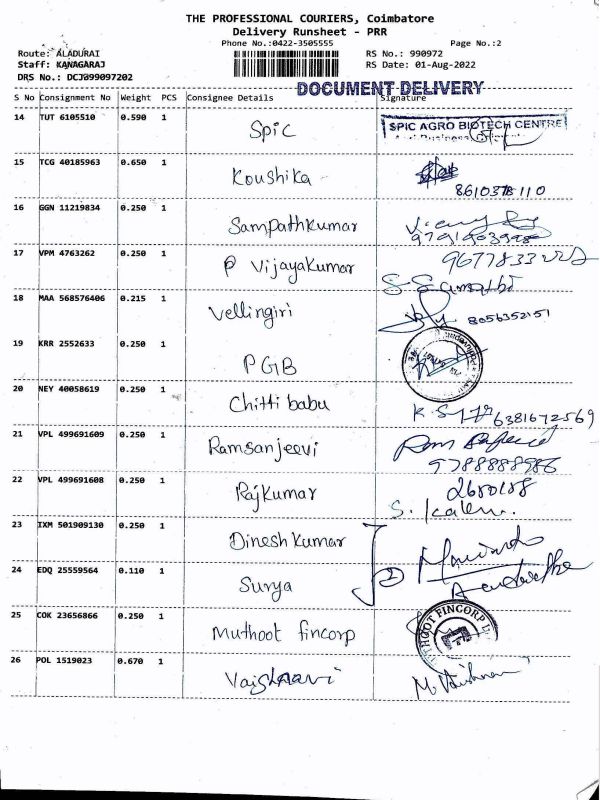 THE PROFESSIONAL COURIERS, Coimbatore
Delivery Runsheet - PRR
Phone No.:0422-3505555 Page No.:2
Route: ALADURAI RS No.: 990972
Staff: KANAGARAJ RS Date: 01-Aug-2022
DRS No.: DCJ099097202
DOCUMENT DELIVERY
S No Consignment No Weight PCS Consignee Details Signature
14 TUT 6105510 0.590 1 Spic SPIC AGRO BIOTECH CENTRE
15 TCG 40185963 0.650 1 Koushika
8610378110
16 GGN 11219834 0.250 1 Sampathkumar
17 VPM 4763262 0.250 1 P Vijayakumar
18 MAA 568576406 0.215 1 Vellingiri 8056352151
19 KRR 2552633 0.250 1 PGB
20 NEY 40058619 0.250 1 Chitti babu 6381672569
21 VPL 499691609 0.250 1 Ramsanjeevi
9788888986
22 VPL 499691608 0.250 1 Rajkumar
23 IXM 501909130 0.250 1 Dinesh Kumar
24 EDQ 25559564 0.110 1 Surya
25 COK 23656866 0.250 1 Muthoot fincorp
26 POL 1519023 0.670 1 Vaishnavi